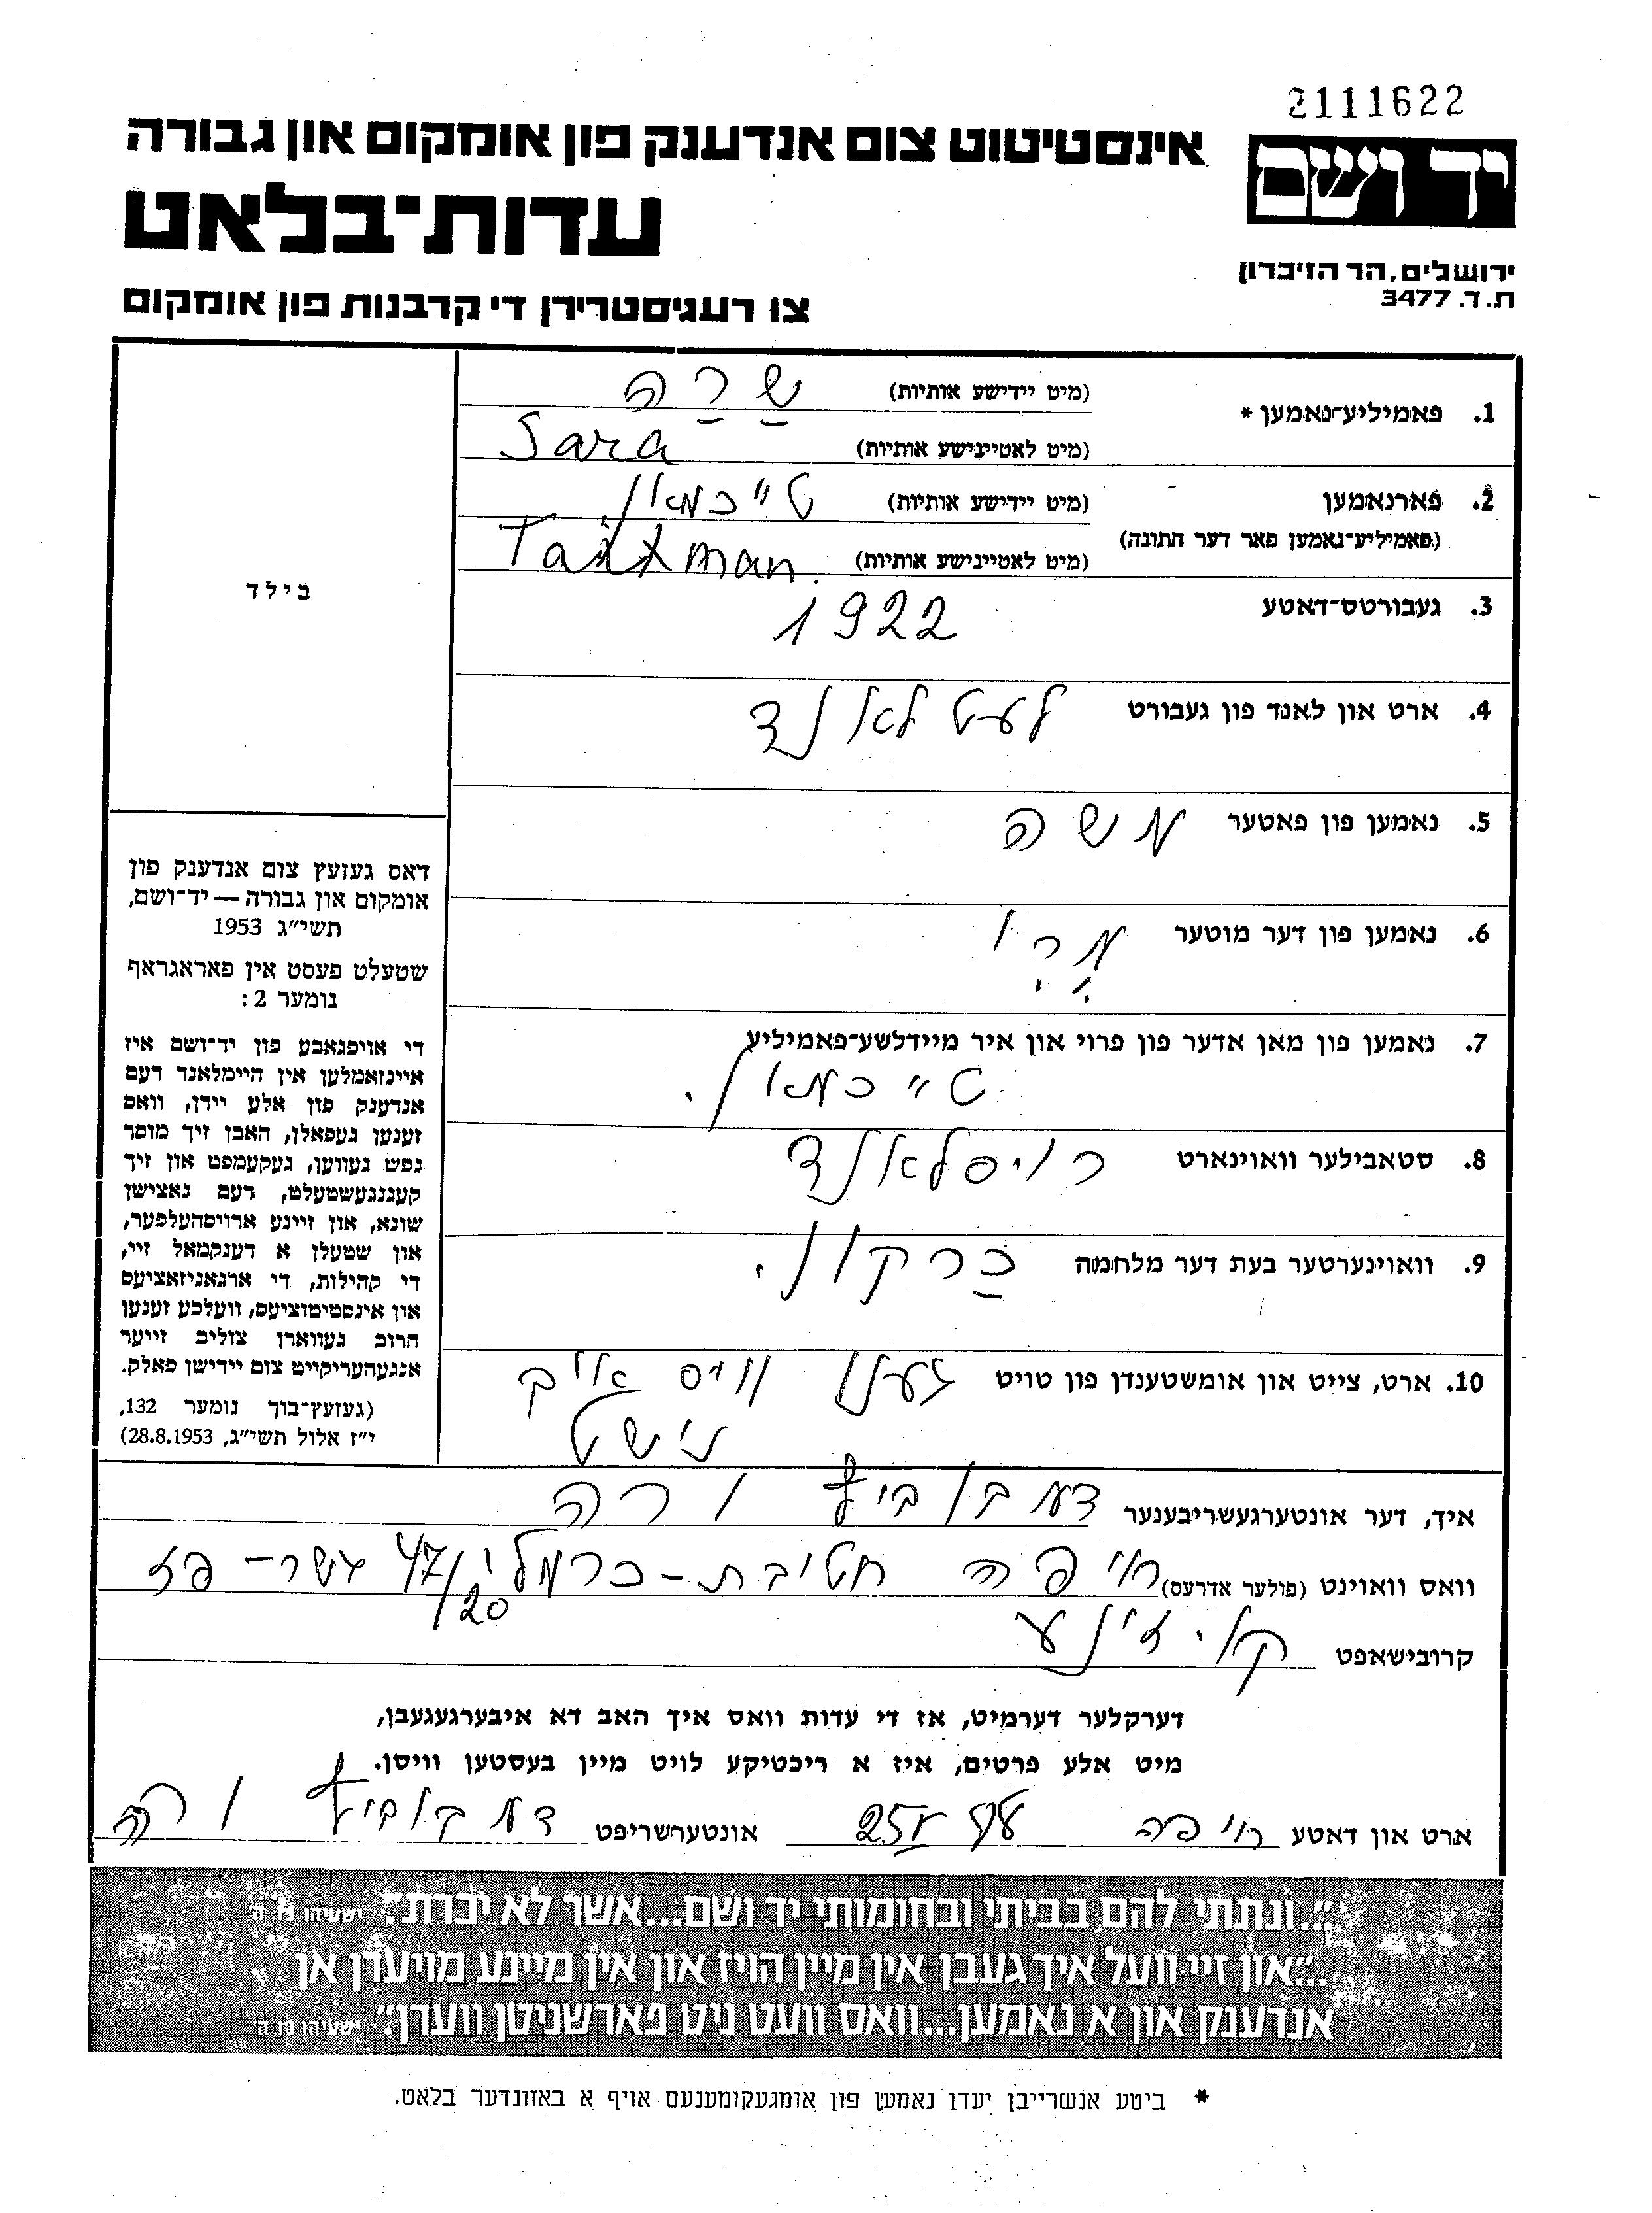 2111622
יד ושם
אינסטיטוט צום אנדענק פון אומקום און גבורה
עדות־בלאט
ירושלים, הר הזיכרון
ת.ד. 3477
צו רעגיסטרירן די קרבנות פון אומקום
1. פאמיליע־נאמען * (מיט יידישע אותיות) שָרָה
(מיט לאטיינישע אותיות) Sara
2. פארנאמען (מיט יידישע אותיות) טייכמאן
(פאמיליע־נאמען פאר דער חתונה) (מיט לאטיינישע אותיות)
3. געבורטס־דאטע 1922
4. ארט און לאנד פון געבורט לעטלאנד
5. נאמען פון פאטער משה
6. נאמען פון דער מוטער
7. נאמען פון מאן אדער פון פרוי און איר מיידלשע־פאמיליע
טייכמאן.
8. סטאבילער וואוינארט רויסלאנד
9. וואוינערטער בעת דער מלחמה כַרקון.
10. ארט, צייט און אומשטענדן פון טויט וויס איך
נישט
בילד
דאס געזעץ צום אנדענק פון
אומקום און גבורה — יד־ושם,
תשי״ג 1953
שטעלט פעסט אין פאראגראף
נומער 2:
די אויפגאבע פון יד־ושם איז
איינזאמלען אין היימלאנד דעם
אנדענק פון אלע יידן, וואס
זענען געפאלן, האבן זיך מוסר
נפש געווען, געקעמפט און זיך
קעגנגעשטעלט, דעם נאצישן
שונא, און זיינע ארויסהעלפער,
און שטעלן א דענקמאל זיי,
די קהילות, די ארגאניזאציעס
און אינסטיטוציעס, וועלכע זענען
חרוב געווארן צוליב זייער
אנגעהעריקייט צום יידישן פאלק.
(געזעץ־בוך נומער 132,
י״ז אלול תשי״ג, 28.8.1953)
איך, דער אונטערגעשריבענער ורה
וואס וואוינט (פולער אדרעס) חיפה חטיבת־כרמלי 47/20
קרובישאפט קוזינע
דערקלער דערמיט, אז די עדות וואס איך האב דא איבערגעגעבן,
מיט אלע פרטים, איז א ריכטיקע לויט מיין בעסטען וויסן.
ארט און דאטע חיפה אונטערשריפט ורה
״...ונתתי להם בביתי ובחומותי יד ושם...אשר לא יכרת״. ישעיהו נו ה
...״און זיי וועל איך געבן אין מיין הויז און אין מיינע מויערן אן
אנדענק און א נאמען...וואס וועט ניט פארשניטן ווערן״. ישעיהו נו ה
* ביטע אנשרייבן יעדן נאמען פון אומגעקומענעם אויף א באזונדער בלאט.